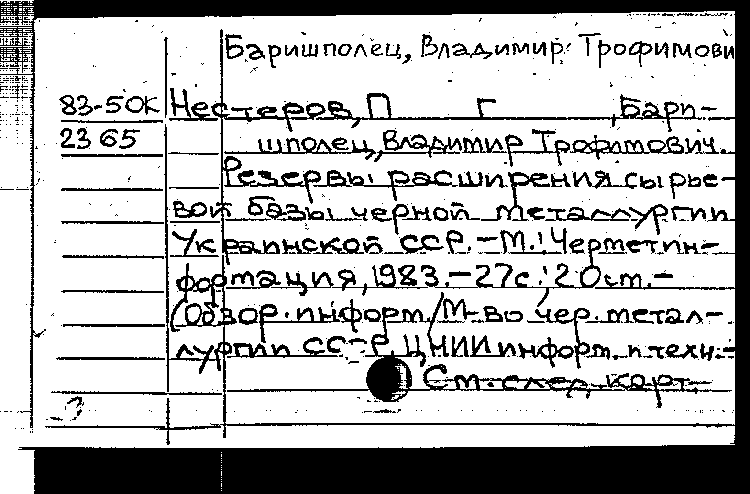 Баришполец, Владимир Трофимови
83-5 ОК Нестеров, П Г , Бари-
2365 шполец, Владимир Трофимович.
Резервы расширения сырье-
вой базы черной металлургии
Украинской ССР. - М.: Черметин-
формация, 1983. - 27с.; 20см. -
(Обзор. информ. / М-во чер. метал-
лургии СССР, ЦНИИ информ. и техн. -
См. след. карт. -